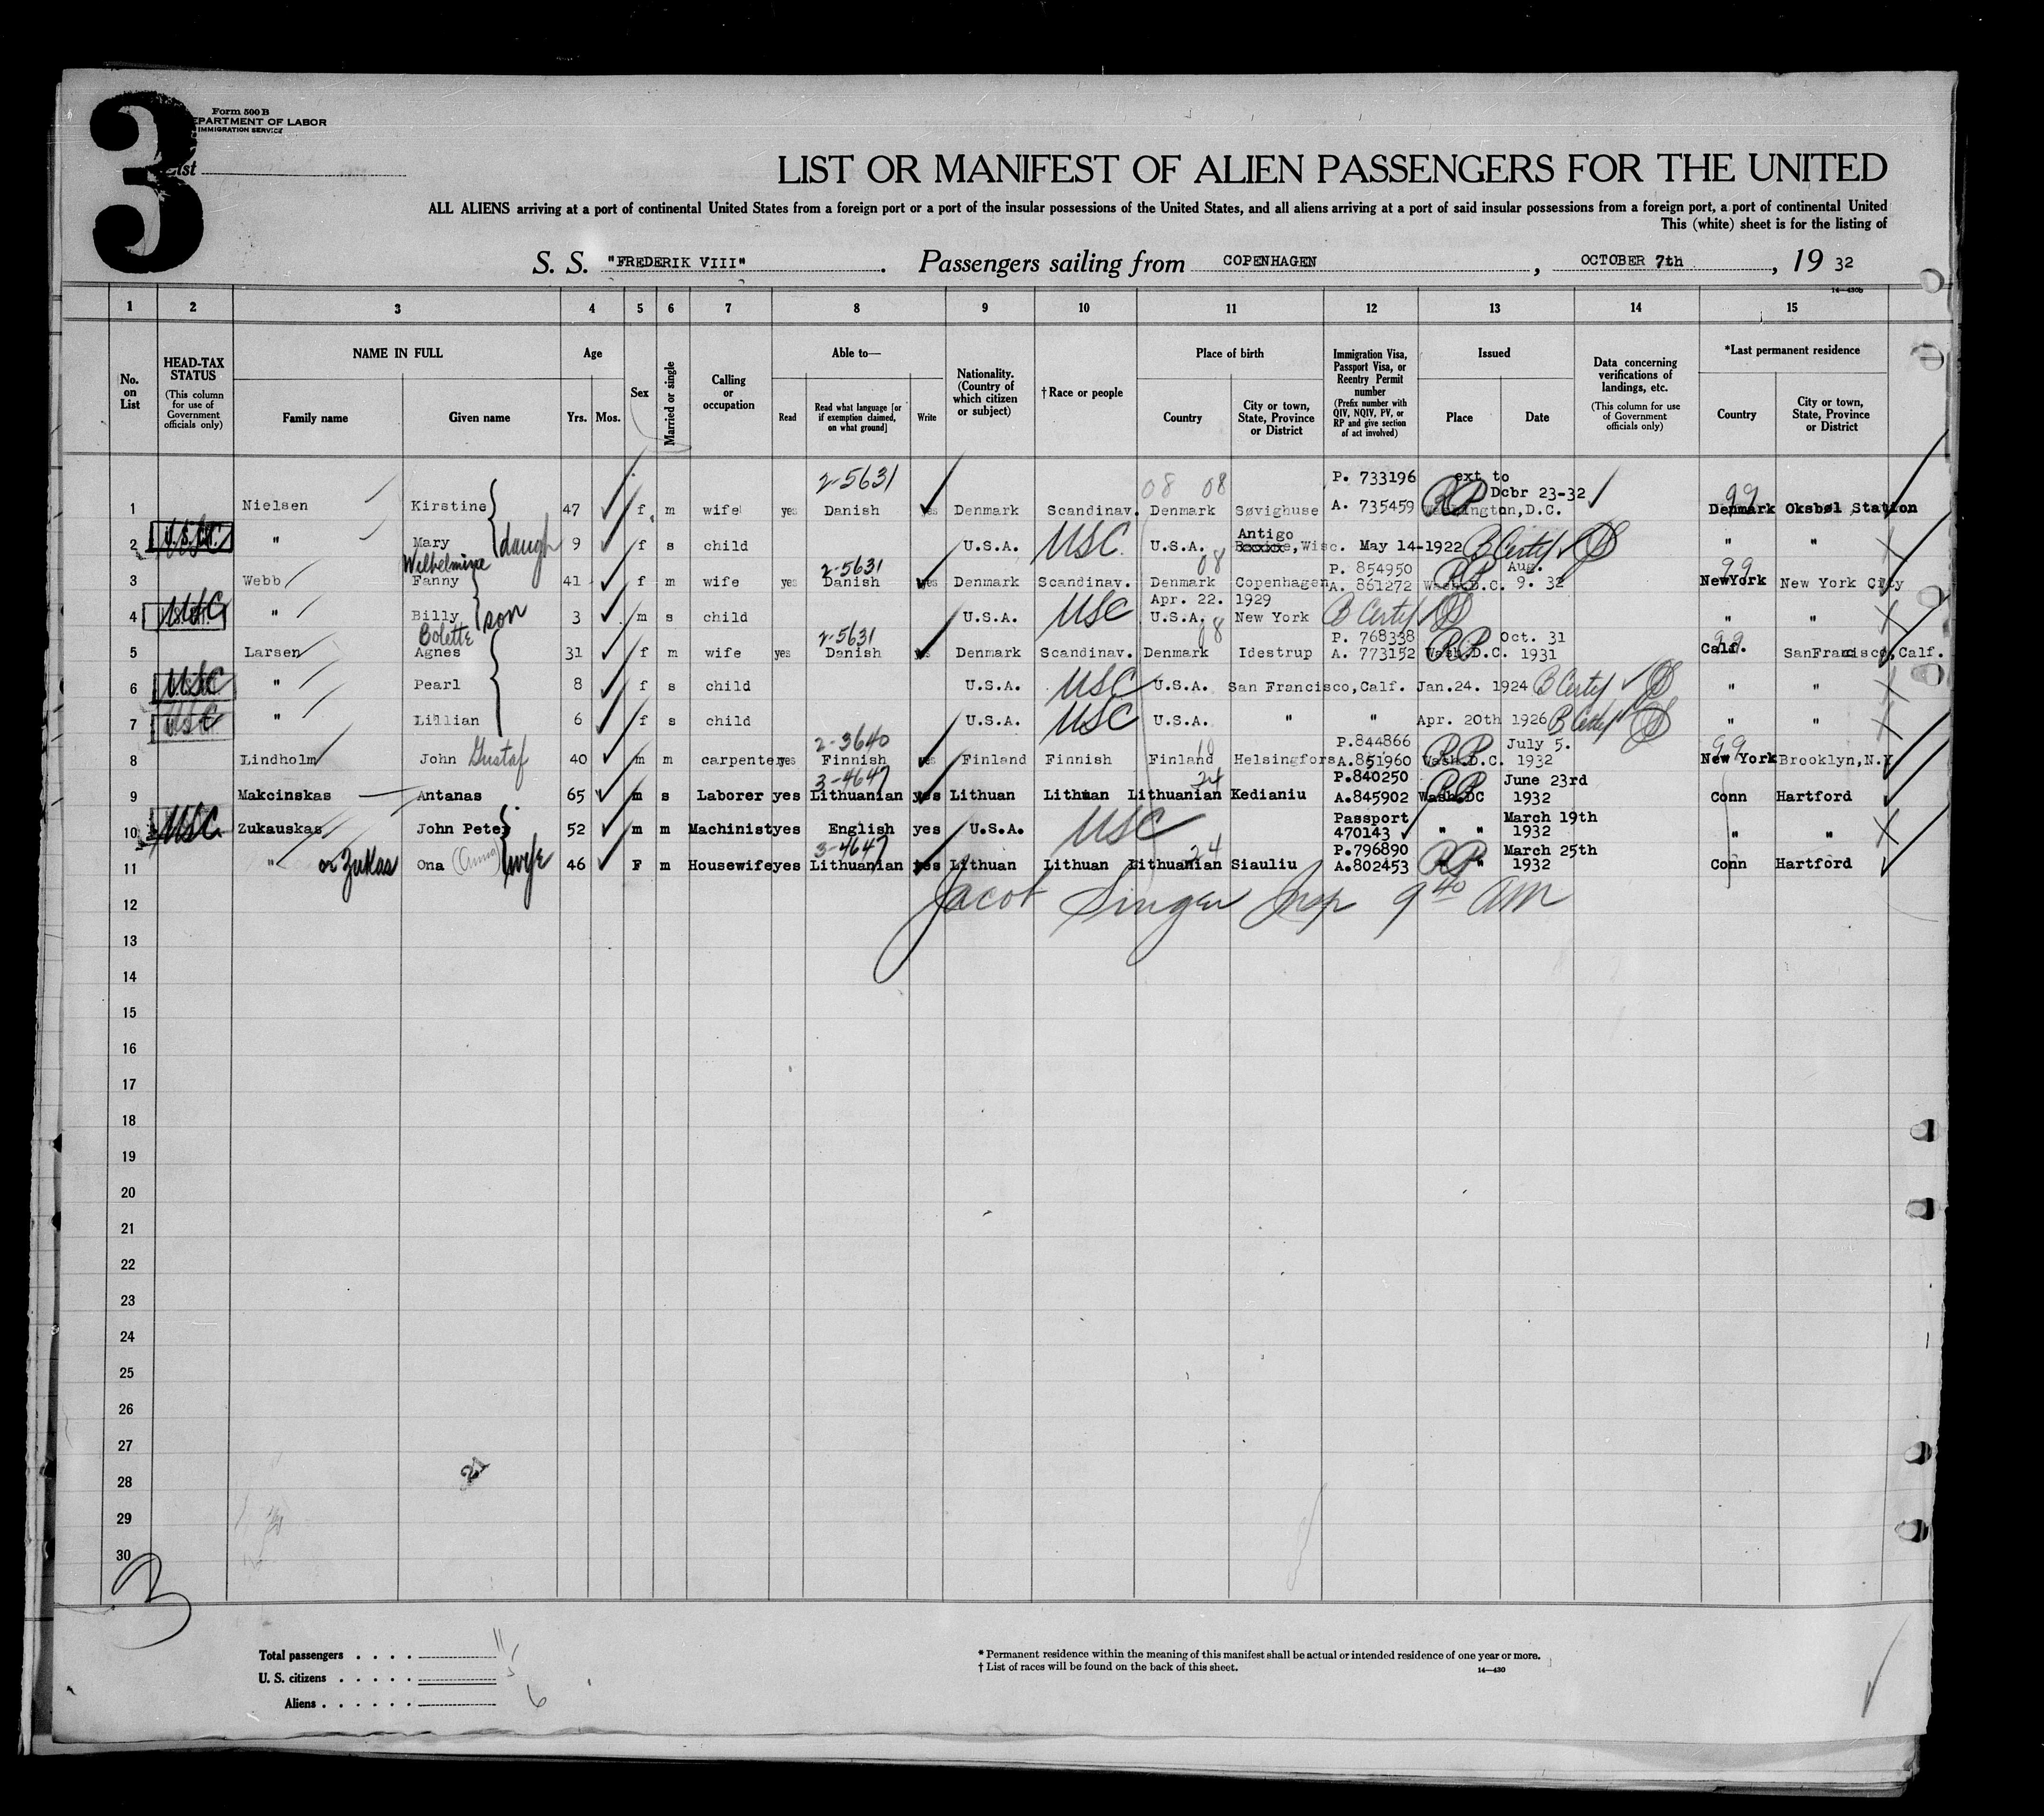 3
Form 500 B
DEPARTMENT OF LABOR
IMMIGRATION SERVICE
List
LIST OR MANIFEST OF ALIEN PASSENGERS FOR THE UNITED
ALL ALIENS arriving at a port of continental United States from a foreign port or a port of the insular possessions of the United States, and all aliens arriving at a port of said insular possessions from a foreign port, a port of continental United
This (white) sheet is for the listing of
S. S. "FREDERIK VIII" . Passengers sailing from COPENHAGEN , OCTOBER 7th , 19 32
14—430b
1 2 3 4 5 6 7 8 9 10 11 12 13 14 15
No. on List
HEAD-TAX STATUS (This column for use of Government officials only)
NAME IN FULL Family name Given name
Age Yrs. Mos.
Sex
Married or single
Calling or occupation
Able to— Read Read what language [or if exemption claimed, on what ground] Write
Nationality. (Country of which citizen or subject)
†Race or people
Place of birth Country City or town, State, Province or District
Immigration Visa, Passport Visa, or Reentry Permit number (Prefix number with QIV, NQIV, PV, or RP and give section of act involved)
Issued Place Date
Data concerning verifications of landings, etc. (This column for use of Government officials only)
*Last permanent residence Country City or town, State, Province or District
2-5631 08 08 P. 733196 ext to Dcbr 23-32 99
1 Nielsen Kirstine 47 f m wife yes Danish yes Denmark Scandinav. Denmark Søvighuse A. 735459 RP Washington, D.C. Denmark Oksbøl Station
Antigo
2 USC " Mary daugh 9 f s child U.S.A. USC U.S.A. Wisc. May 14-1922 B Certif " "
Wilhelmine 2-5631 08 P. 854950 RP Aug. 99
3 Webb Fanny 41 f m wife yes Danish yes Denmark Scandinav. Denmark Copenhagen A. 861272 Wash.D.C. 9. 32 NewYork New York City
Apr. 22. 1929
4 USC " Billy son 3 m s child U.S.A. USC U.S.A. New York B Certif " "
Bolette 2-5631 08 P. 768338 RP Oct. 31 99
5 Larsen Agnes 31 f m wife yes Danish yes Denmark Scandinav. Denmark Idestrup A. 773152 Wash.D.C. 1931 Calf. SanFrancisco,Calf.
6 USC " Pearl 8 f s child U.S.A. USC U.S.A. San Francisco,Calf. Jan.24. 1924 B Certif " "
7 USC " Lillian 6 f s child U.S.A. USC U.S.A. " " Apr. 20th 1926 B Certif " "
2-3640 10 P.844866 RP July 5. 99
8 Lindholm John Gustaf 40 m m carpenter yes Finnish yes Finland Finnish Finland Helsingfors A.851960 Wash.D.C. 1932 New York Brooklyn,N.Y
3-4647 24 P.840250 RP June 23rd
9 Makcinskas Antanas 65 m s Laborer yes Lithuanian yes Lithuan Lithuan Lithuanian Kedianiu A.845902 Wash.DC 1932 Conn Hartford
Passport March 19th
10 USC Zukauskas John Peter 52 m m Machinist yes English yes U.S.A. USC 470143 " " 1932 " "
3-4647 24 P.796890 RP March 25th
11 " or Zukas Ona (Anna) wife 46 F m Housewife yes Lithuanian yes Lithuan Lithuan Lithuanian Siauliu A.802453 " " 1932 Conn Hartford
12 Jacob Singer Insp 9 40 AM
13
14
15
16
17
18
19
20
21
22
23
24
25
26
27
28
29
30
3
Total passengers . . . . 11
U. S. citizens . . . . . 5
Aliens . . . . . . 6
* Permanent residence within the meaning of this manifest shall be actual or intended residence of one year or more.
† List of races will be found on the back of this sheet.
14—430